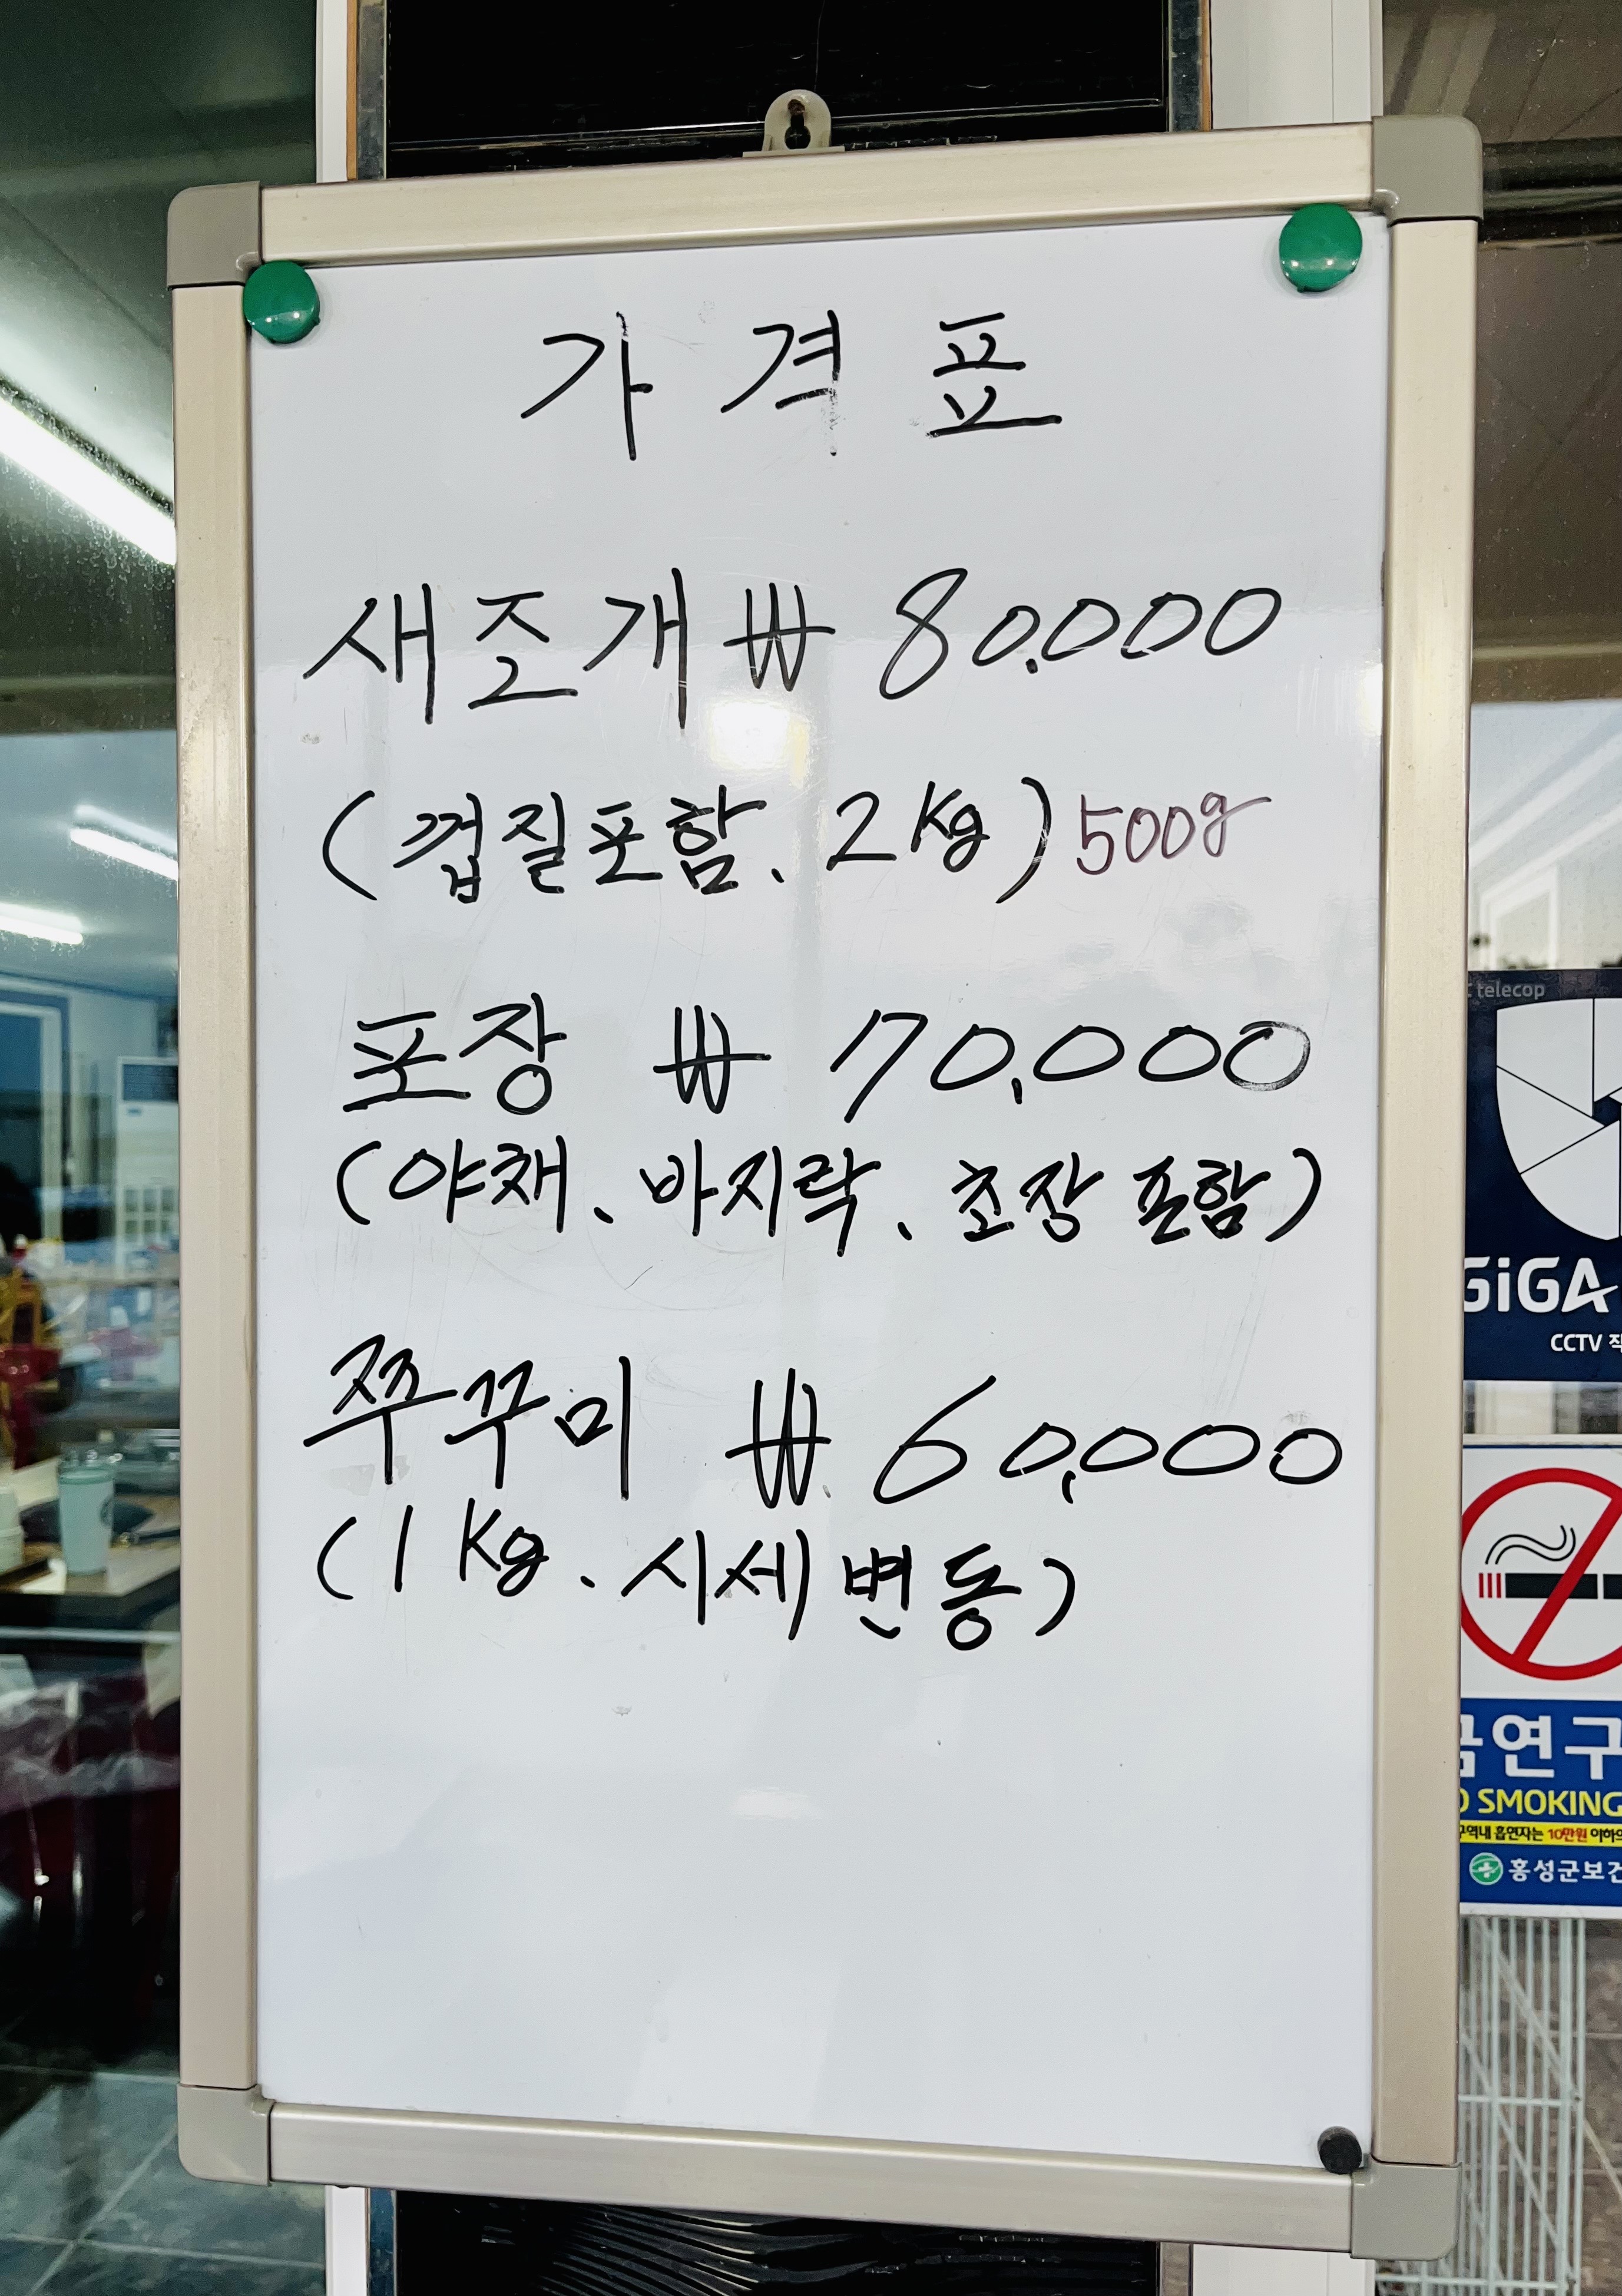 가격표
새조개 ₩ 80.000
(껍질포함. 2kg) 500g
포장 ₩ 70,000
(야채. 바지락. 초장 포함)
쭈꾸미 ₩ 60,000
(1kg. 시세변동)
telecop
GiGA
CCTV
금연구
SMOKING
구역내 흡연자는 10만원 이하의
홍성군보건